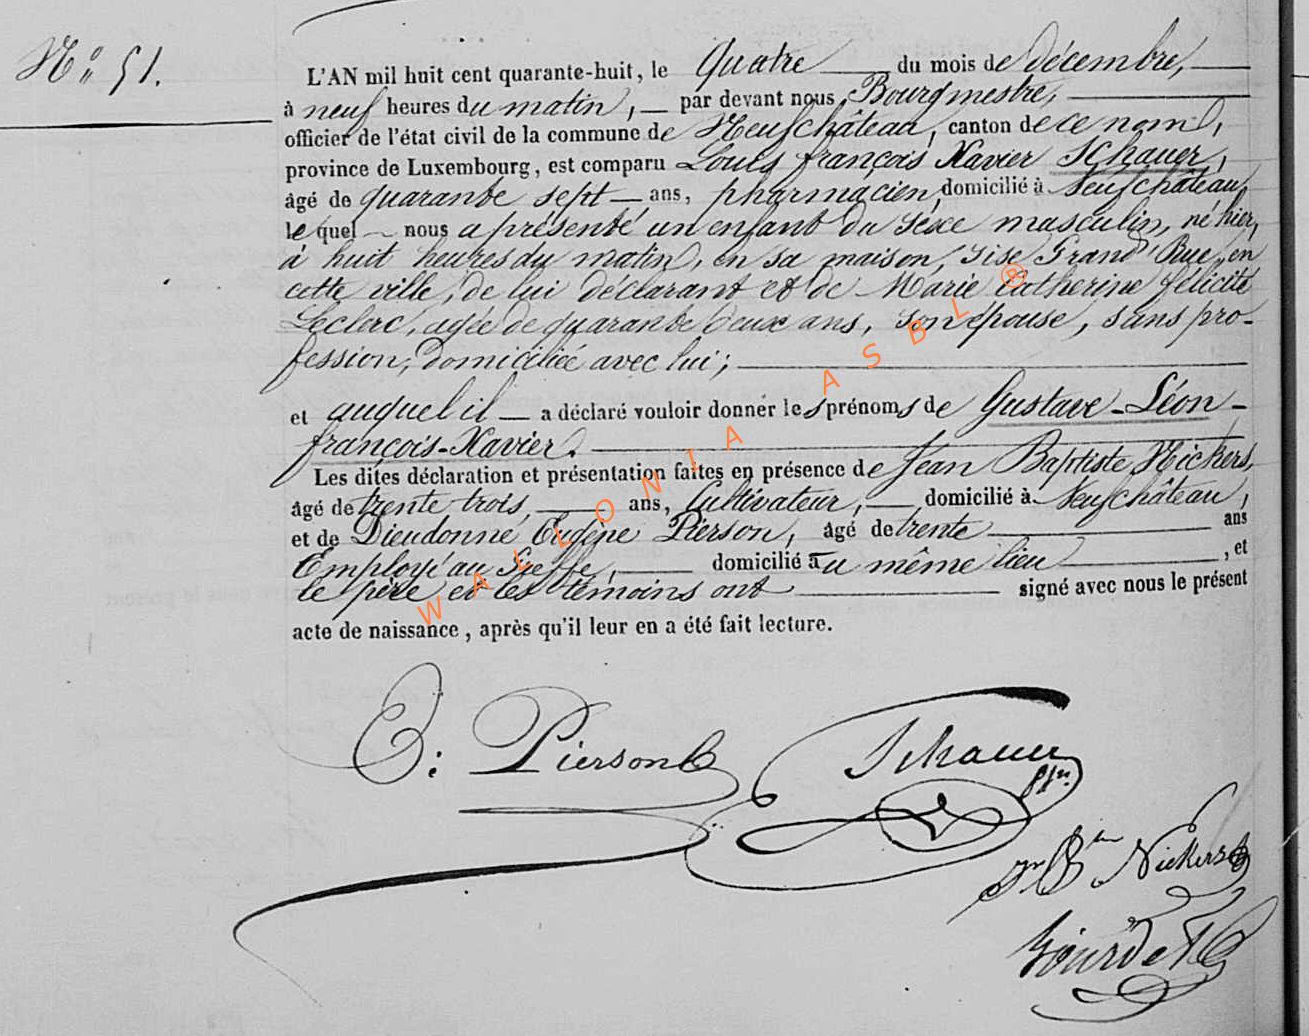 N° 51.
L'AN mil huit cent quarante-huit, le Quatre du mois de décembre,
à neuf heures du matin, par devant nous, Bourgmestre,
officier de l'état civil de la commune de Neufchâteau, canton de ce nom,
province de Luxembourg, est comparu Louis françois Xavier Schauer,
âgé de quarante sept ans, pharmacien, domicilié à Neufchâteau,
lequel nous a présenté un enfant du sexe masculin, né hier,
à huit heures du matin, en sa maison, sise Grand'Rue, en
cette ville, de lui déclarant et de Marie Catherine félicité
Leclerc, agée de quarante deux ans, son épouse, sans pro-
fession, domiciliée avec lui;
et auquel il a déclaré vouloir donner les prénoms de Gustave-Léon-
françois-Xavier.
Les dites déclaration et présentation faites en présence de Jean Baptiste Nickers,
âgé de trente trois, ans, Cultivateur, domicilié à Neufchâteau,
et de Dieudonné Eugène Pierson, âgé de trente ans
Employé au Greffe, domicilié au même lieu, et
le père et les témoins ont signé avec nous le présent
acte de naissance, après qu'il leur en a été fait lecture.
E: Pierson
Schauer
phn.
Jn Bte Nickers
Bourdet
WALLONIA ASBL ®